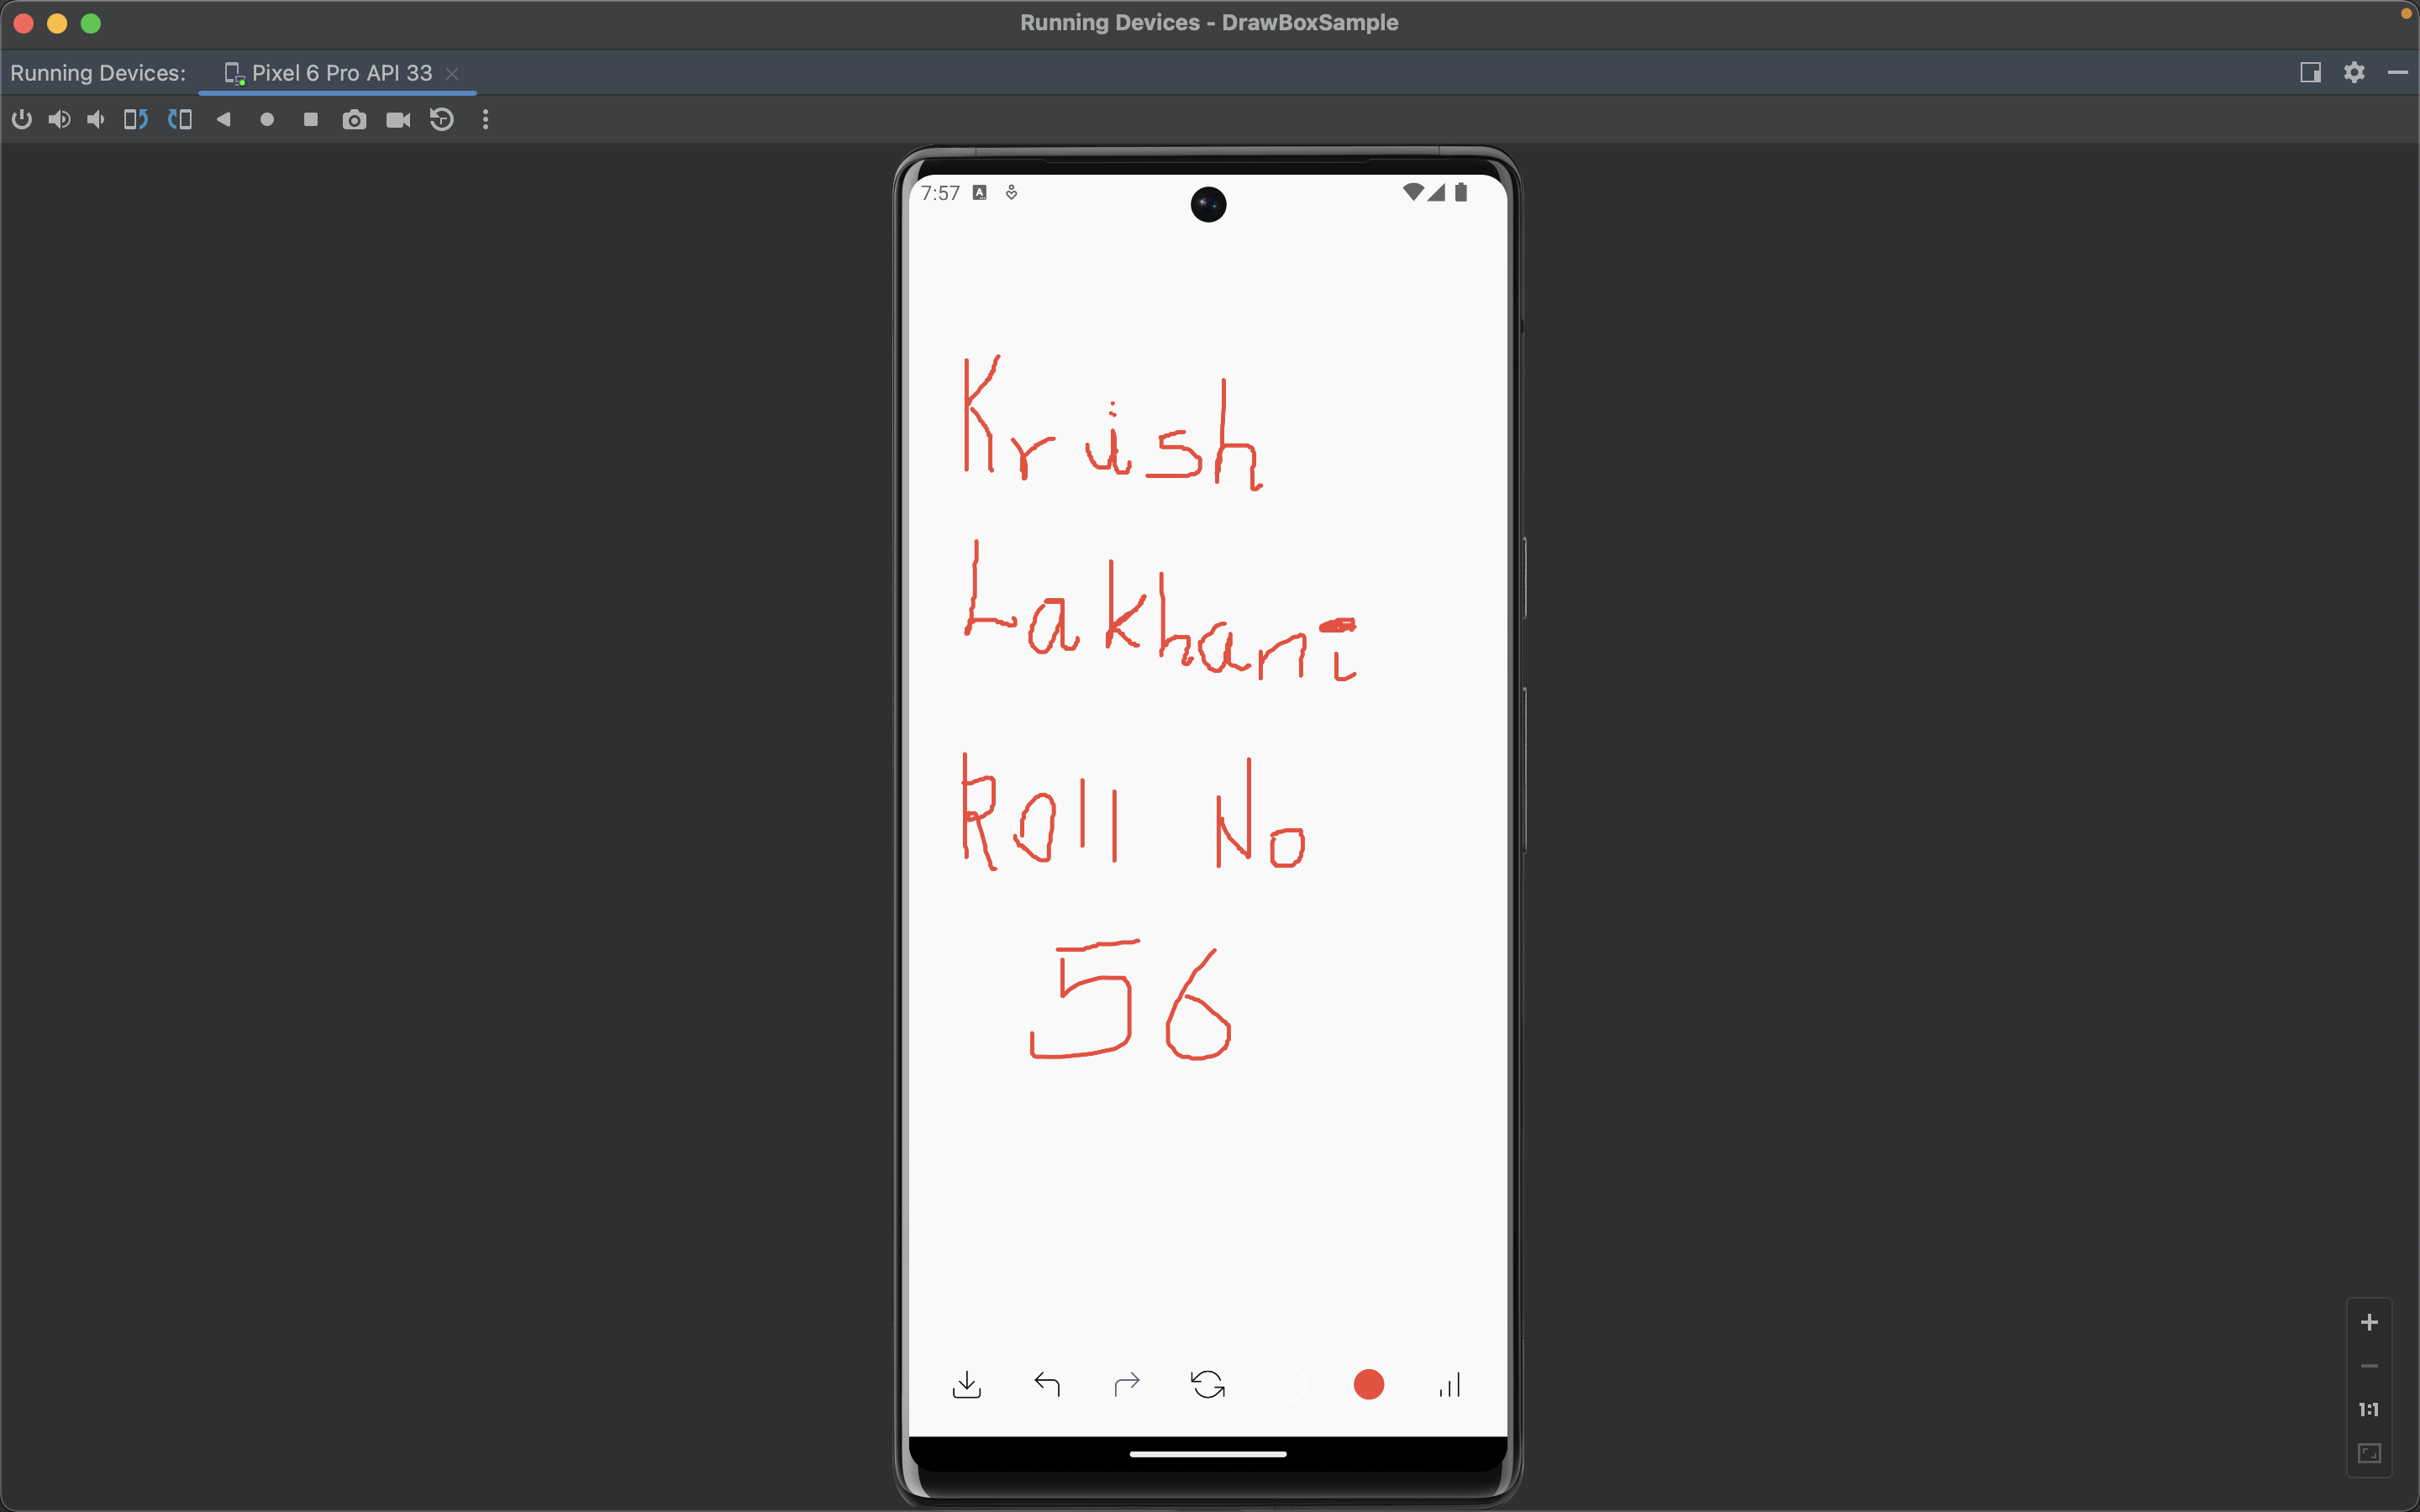 Running Devices - DrawBoxSample
Running Devices: Pixel 6 Pro API 33
7:57 A
Krish
Lakhani
Roll No
56
1:1